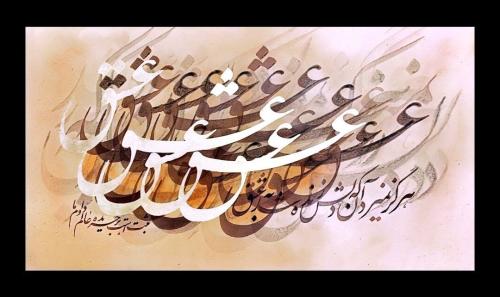 عشق عشق عشق عشق
هرگز نمیرد آنکه دلش زنده شد به عشق
ثبت است بر جریده عالم دوام ما